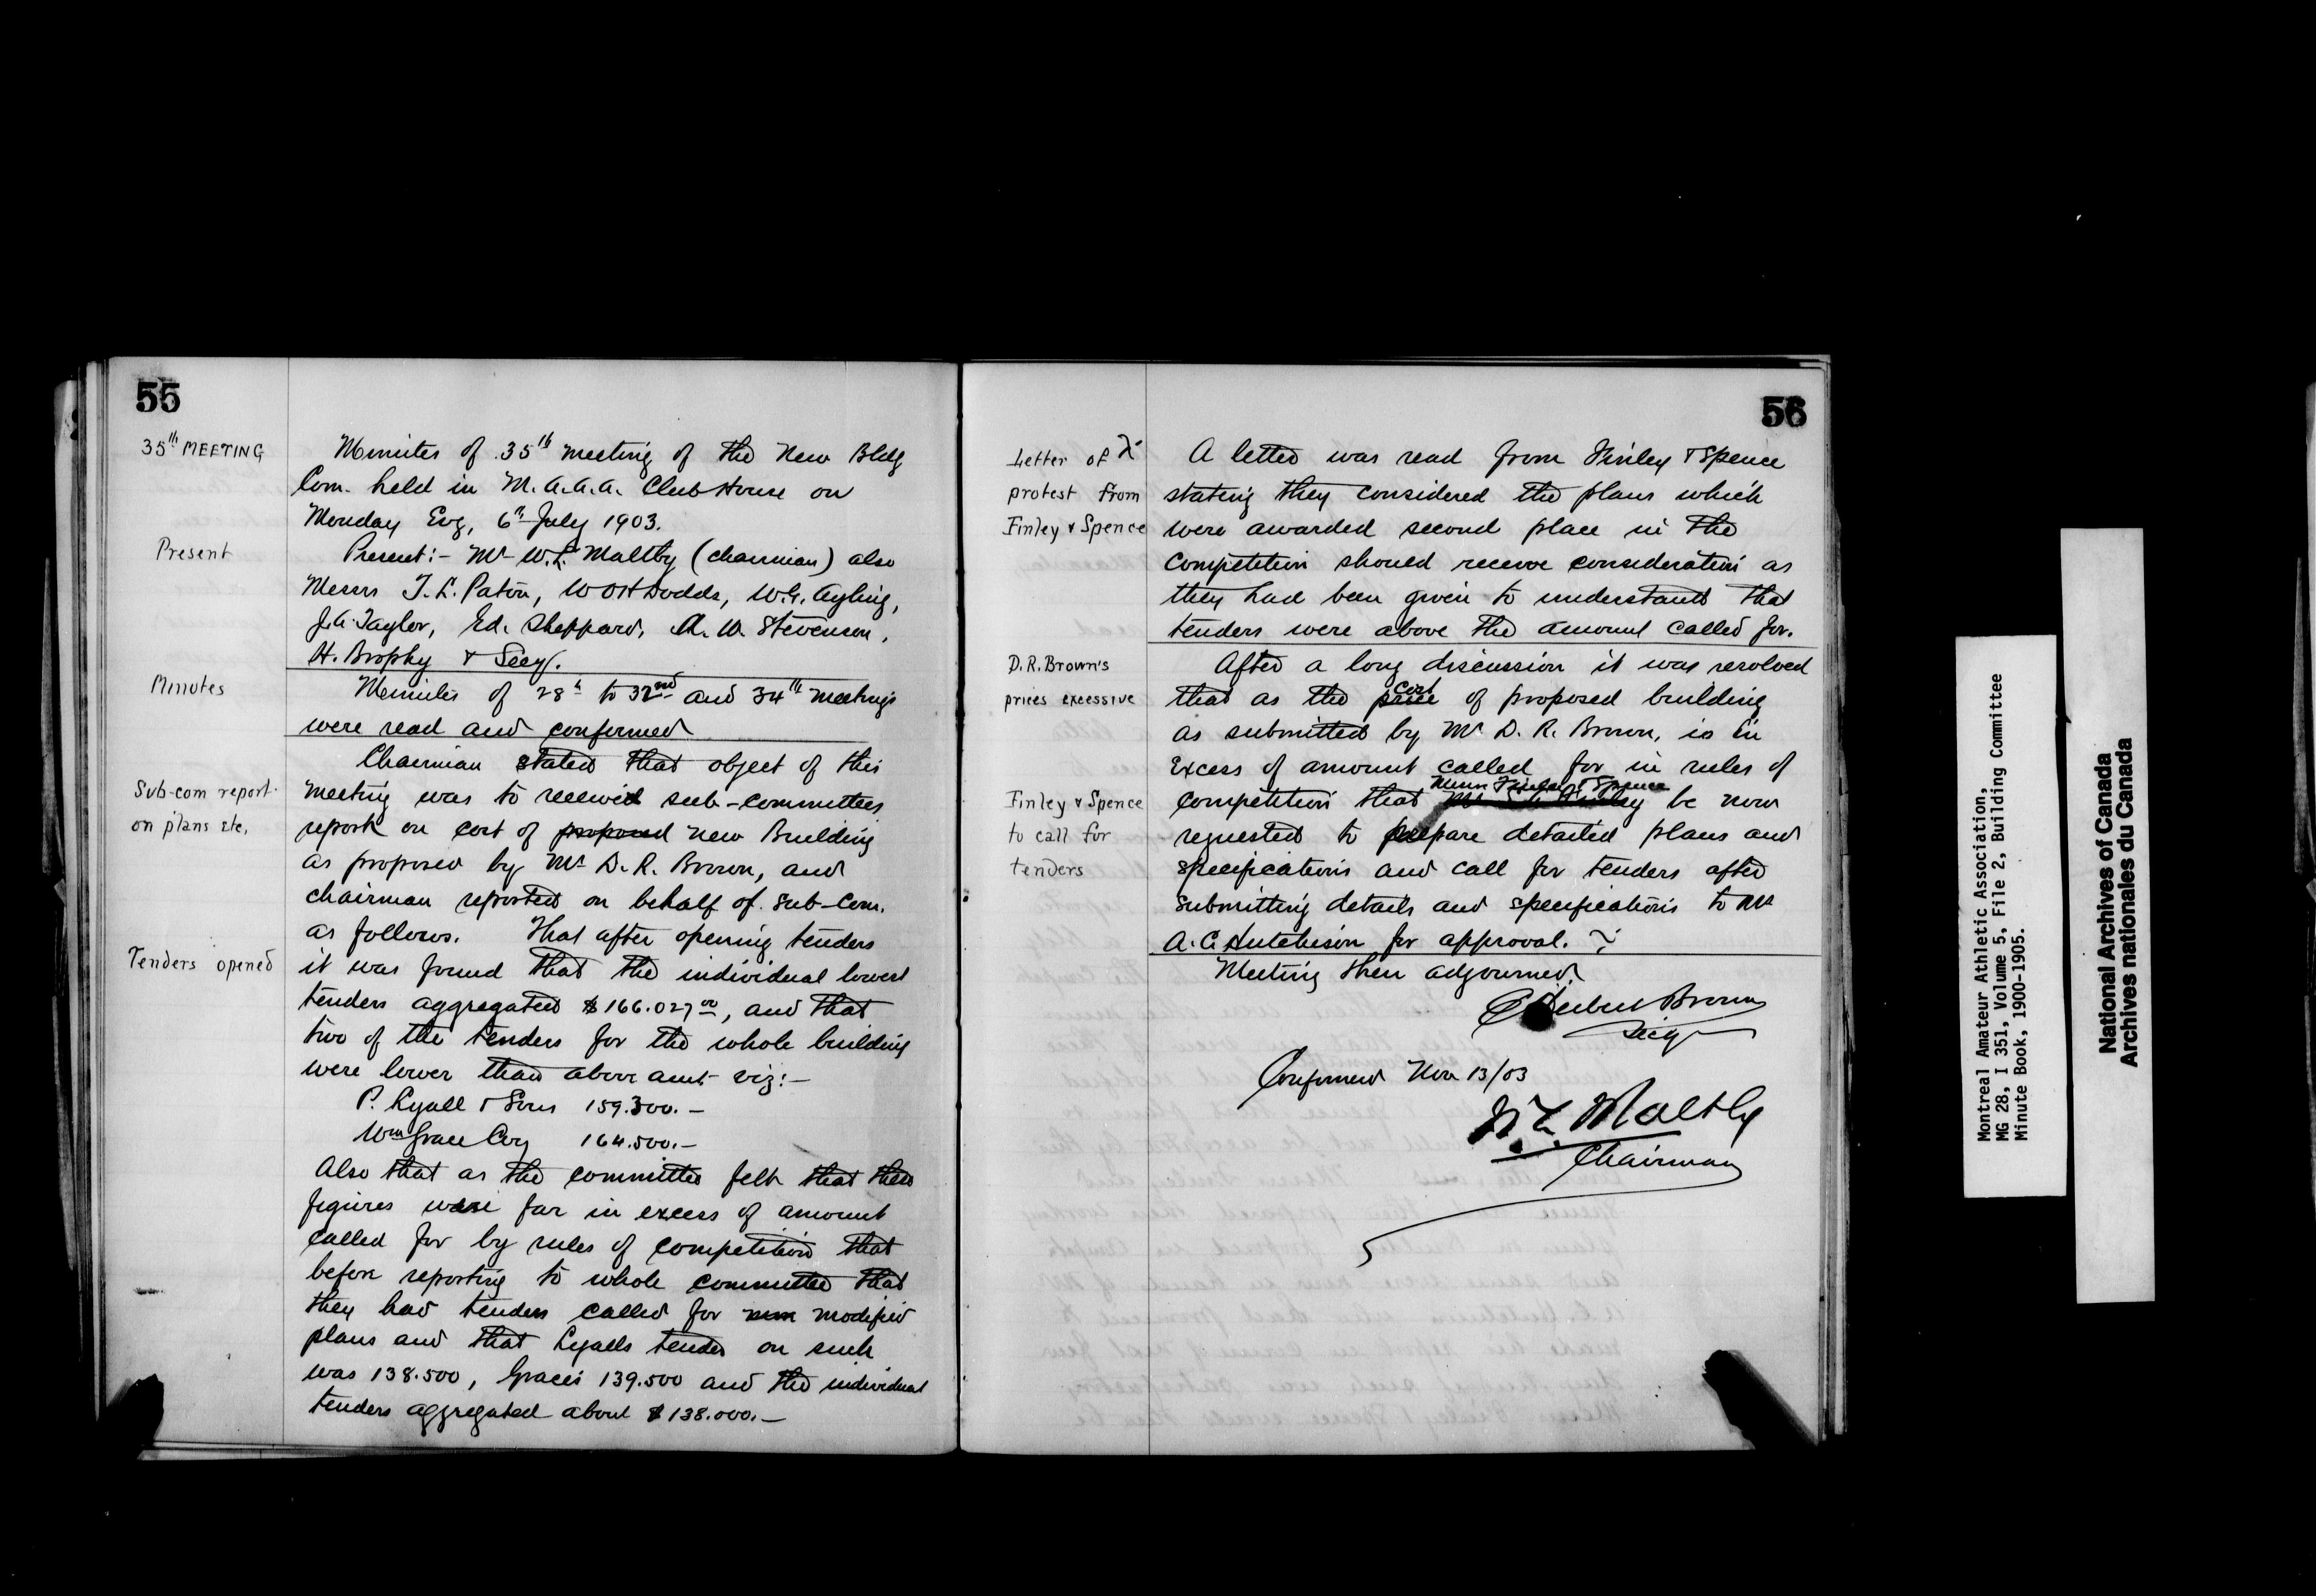 55
35th MEETING
Minutes of 35th meeting of the New Bldg
Com. held in M.A.A.A. Club House on
Monday Evg, 6th July 1903.
Present
Present:- Mr W.L. Maltby (chairman) also
Messrs T.L. Paton, W O H Dodds, W.G. Ayling,
J.A. Taylor, Ed. Sheppard, A. W. Stevenson,
H. Brophy & Secy.
Minutes
Minutes of 28th to 32nd and 34th meetings
were read and confirmed
Chairman stated that object of this
Sub-com report
on plans etc.
meeting was to receive sub-committees
report on cost of proposed new Building
as proposed by Mr D.R. Brown, and
chairman reported on behalf of sub-com.
as follows. That after opening tenders
Tenders opened
it was found that the individual lowest
tenders aggregated $166.027 00, and that
two of the tenders for the whole building
were lower than above amt viz:-
P. Lyall & Sons 159.300.-
Wm Grace Coy 164.500.-
Also that as the committee felt that these
figures were far in excess of amount
called for by rules of competition that
before reporting to whole committee that
they had tenders called for modified
plans and that Lyalls tender on such
was 138.500, Graces 139.500 and the individual
tenders aggregated about $138.000.-
56
Letter of
protest from
Finley & Spence
A letter was read from Finley & Spence
stating they considered the plans which
were awarded second place in the
competition should receive consideration as
they had been given to understand that
tenders were above the amount called for.
D.R. Brown's
prices excessive
After a long discussion it was resolved
cost
that as the price of proposed building
as submitted by Mr D. R. Brown, is in
excess of amount called for in rules of
Finley & Spence
to call for
tenders
Messrs Finley & Spence
competition that be now
requested to prepare detailed plans and
specifications and call for tenders after
submitting details and specifications to Mr
A.C. Hutchison for approval.
Meeting then adjourned.
Herbert Brown
Secy
Confirmed Nov 13/03
W L Maltby
Chairman
Montreal Amateur Athletic Association,
MG 28, I 351, Volume 5, File 2, Building Committee
Minute Book, 1900-1905.
National Archives of Canada
Archives nationales du Canada